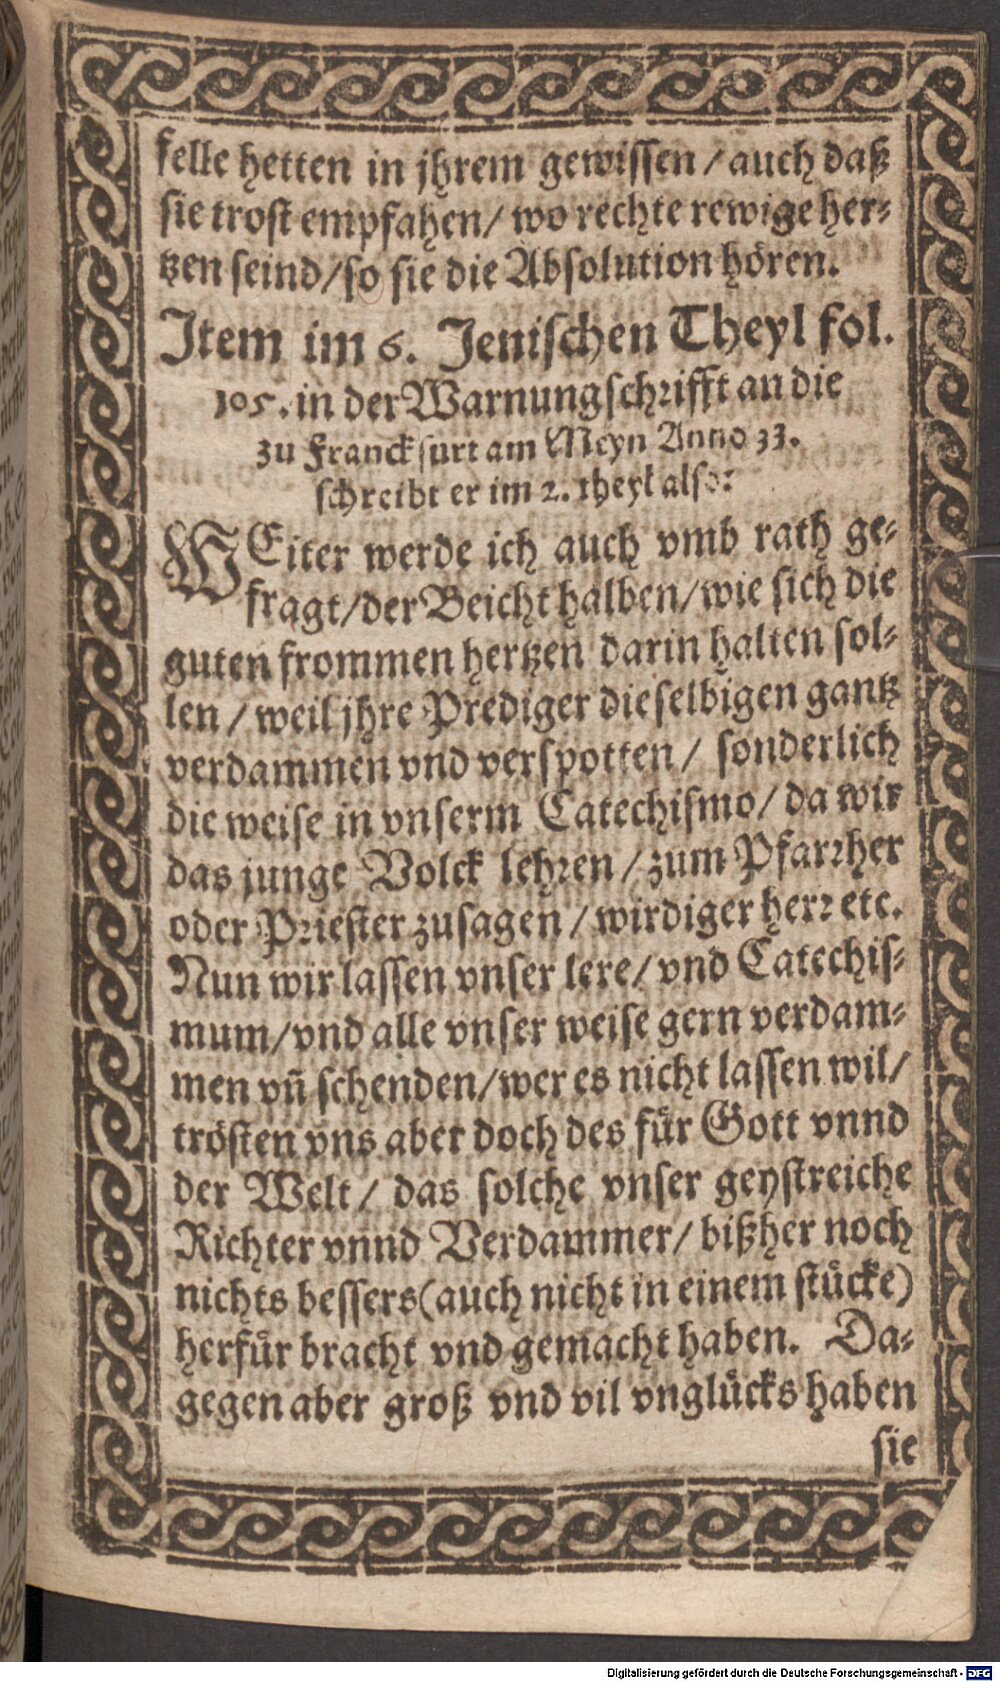 felle hetten in jhrem gewissen / auch daß
sie trost empfahen / wo rechte rewige her-
tzen seind / so sie die Absolution hören.
Item im 6. Jenischen Theyl fol.
105. in der Warnungschrifft an die
zu Franckfurt am Meyn Anno 33.
schreibt er im 2. theyl also:
WEiter werde ich auch vmb rath ge-
fragt / der Beicht halben / wie sich die
guten frommen hertzen darin halten sol-
len / weil jhre Prediger dieselbigen gantz
verdammen vnd verspotten / sonderlich
die weise in vnserm Catechismo / da wir
das junge Volck lehren / zum Pfarrher
oder Priester zusagen / wirdiger herr etc.
Nun wir lassen vnser lere / vnd Catechis-
mum / vnd alle vnser weise gern verdam-
men vñ schenden / wer es nicht lassen wil /
trösten vns aber doch des für Gott vnnd
der Welt / das solche vnser geystreiche
Richter vnnd Verdammer / bißher noch
nichts bessers (auch nicht in einem stücke)
herfür bracht vnd gemacht haben. Da-
gegen aber groß vnd vil vnglücks haben
sie
Digitalisierung gefördert durch die Deutsche Forschungsgemeinschaft - DFG